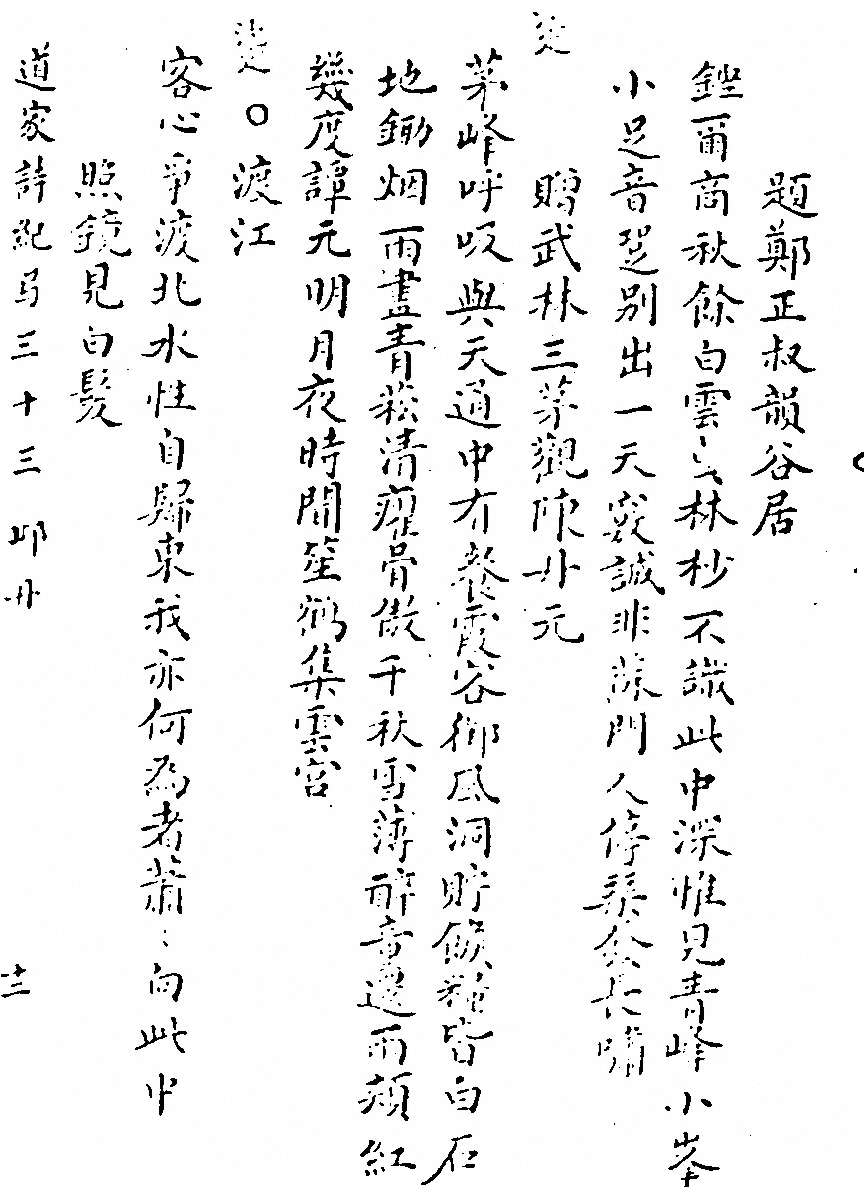 題鄭正叔韻谷居
鏗爾商秋餘白雲曳林杪不識此中深惟見青峰小峯
小足音跫別出一天竅誠非蘇門人停琴答長嘯
贈武林三茅觀陳丹元
茅峰呼吸與天通中有飡霞客御風洞貯餱粮皆白石
地鋤烟雨盡青菘清癯骨傲千秋雪薄醉音還兩頰紅
幾度譚元明月夜時聞笙鶴集雲宮
渡江
客心爭渡北水性自歸東我亦何為者蕭〻向此中
照鏡見白髮
道家詩紀 三十三 邱丹
十三